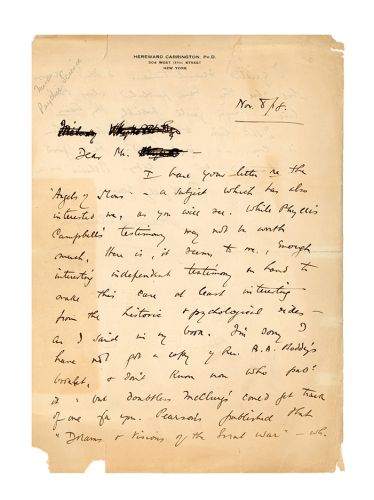 HEREWARD CARRINGTON, PH.D.
504 WEST 111TH STREET
NEW YORK
Psychic Science
Nov. 8/18.
Dear Mr.
I have your letter re the
"Angels of Mons" - a subject which has also
interested me, as you will see. While Phyllis
Campbell's testimony may not be worth
much, there is, it seems to me, enough
interesting independent testimony on hand to
make this case at least interesting
from the historic & psychological sides -
as I said in my book. I'm sorry I
have not got a copy of Rev. A.A. Boddy's
booklet, & don't know now who pub'd
it; but doubtless McClurg's could get track
of one for you. Pearsons published that
"Dreams & Visions of the Great War" - wh.